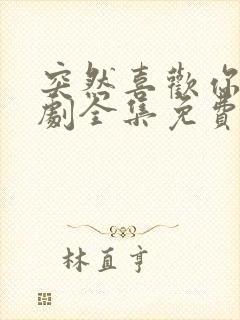 突然喜歡你
劇全集免費
林直亨